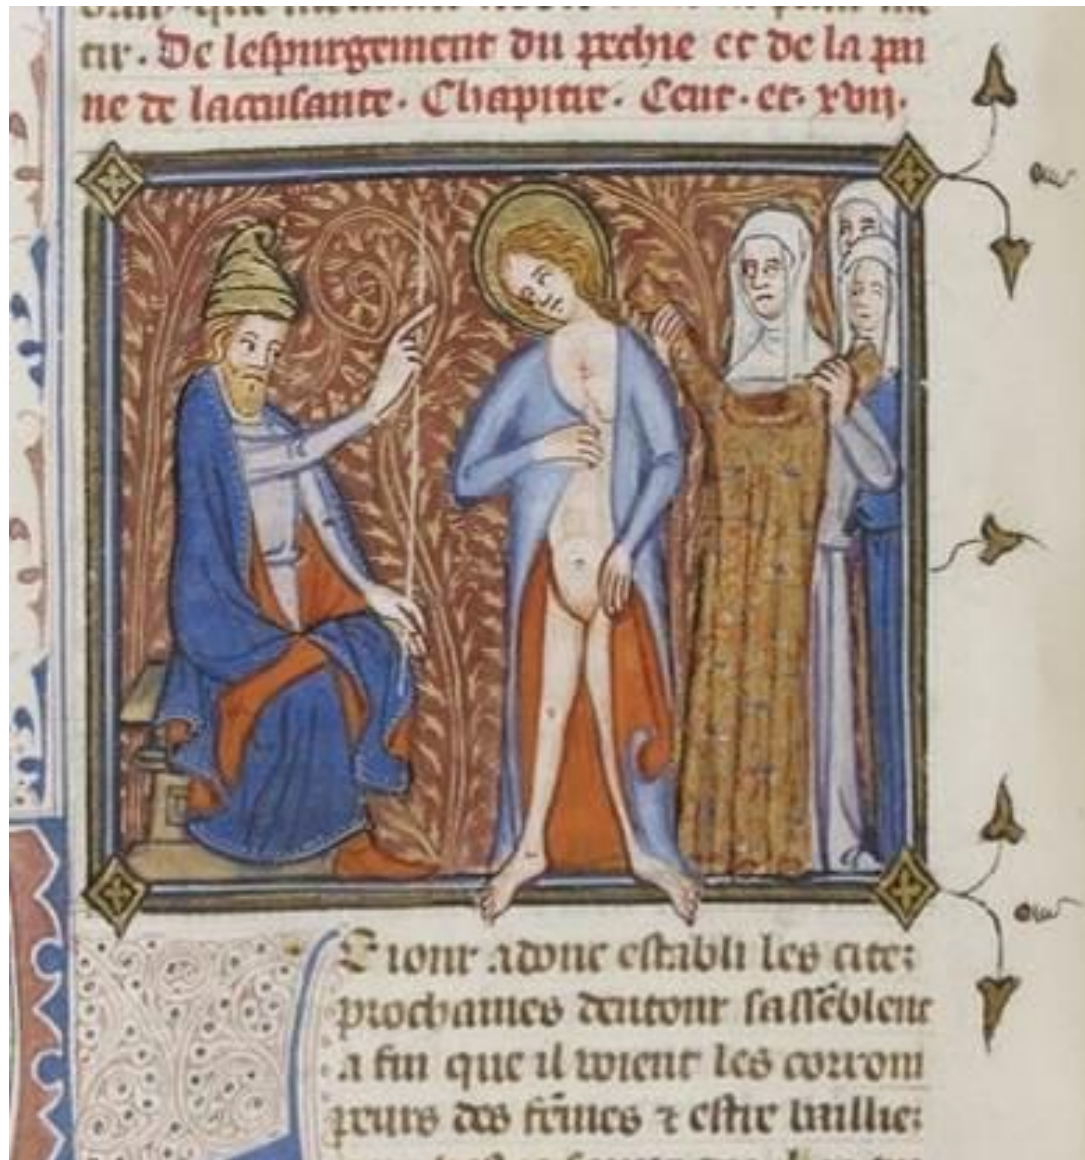 tir. De lespurgement du pechie et de la
ne de lacusante. Chapitre. Cent. et. xvij.
LE iour adonc establi les citez
prochaines dentour sassēblent
a fin que il voient les corrom
peurs des fēmes ⁊ estre bailliez